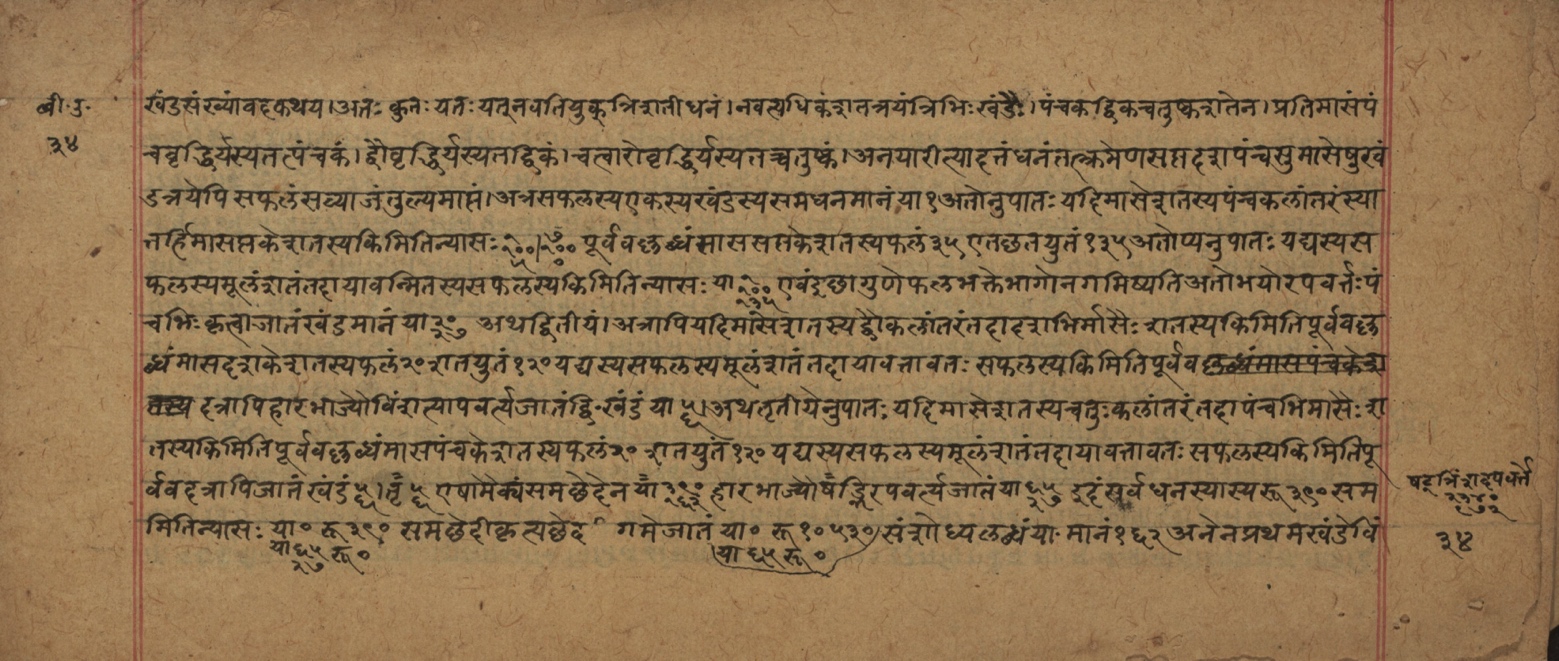 बी॰उ॰
३४
खंडसंख्यांवदकथय।अतः कुतः यतः यतूनवतियुक् त्रिशतीधनं।नवत्यधिकशतत्रयंत्रिभिः खंडैः।पंचकद्विकचतुष्कशतेन।प्रतिमासंपं
चवृद्धिर्यस्यतत्पंचकं।द्वौवृद्धिर्यस्यतद्द्विकं।चत्वारोवृद्धिर्यस्यतच्चतुष्कं।अनयारीत्यादत्तंधनंतत्क्रमेणसप्तदशपंचसुमासेषुखं
डत्रयेपि सफलंसव्याजंतुल्यमाप्तं।अत्रसफलस्यएकस्यखंडस्यसमधनमानंया१अतोनुपातः यदिमासेशतस्यपंचकलांतरंस्या
त्तर्हिमाससप्तकेशतस्यकिमितिन्यासः पूर्ववल्लब्धंमाससप्तकेशतस्यफलं३५एतछतयुतं१३५अतोप्यनुपातः यद्यस्यस
फलस्यमूलंशतंतदायावन्मितस्यसफलस्यकिमितिन्यासः या एवंइछागुणेफलभक्तेभागोनगमिष्यतिअतोभयोरपवर्त्तः पं
चभिः कृत्वाजातंखंडमानं या२०२७ अथद्वितीयं।अत्रापियदिमासेशतस्यद्वौकलांतरंतदादशभिर्मासैः शतस्यकिमितिपूर्ववल्ल
ब्धंमासदशकेशतस्यफलं२०शतयुतं१२०यद्यस्यसफलस्यमूलंशतंतदायावत्तावतः सफलस्यकिमितिपूर्वव
दत्रापिहारभाज्यौविंशत्यापवर्त्यजातंद्वि॰खंडं या५६।अथतृतीयेनुपातः यदिमासेशतस्यचतुःकलांतरंतदापंचभिर्मासैः श
तस्यकिमितिपूर्ववल्लब्धंमासपंचकेशतस्यफलं२०शतयुतं१२०यद्यस्यसफलस्यमूलंशतंतदायावत्तावतः सफलस्यकिमितिपू
र्ववदत्रापिजातंखंडं५६।तृ५६एषामैक्यंसमछेदेनया हारभाज्यौषड्भिरपवर्त्यजातंया६५२७इदंसर्वधनस्यास्यरू३९०सम
मितिन्यासः या०रू३९० समछेदीकृत्यछेद गमेजातं या०रू१०५३०संशोध्यलब्धंया॰मानं१६२अनेनप्रथमखंडेविं
या६५२७रू०
या६५रू०
षट्त्रिंशदपवर्त्ते
३४